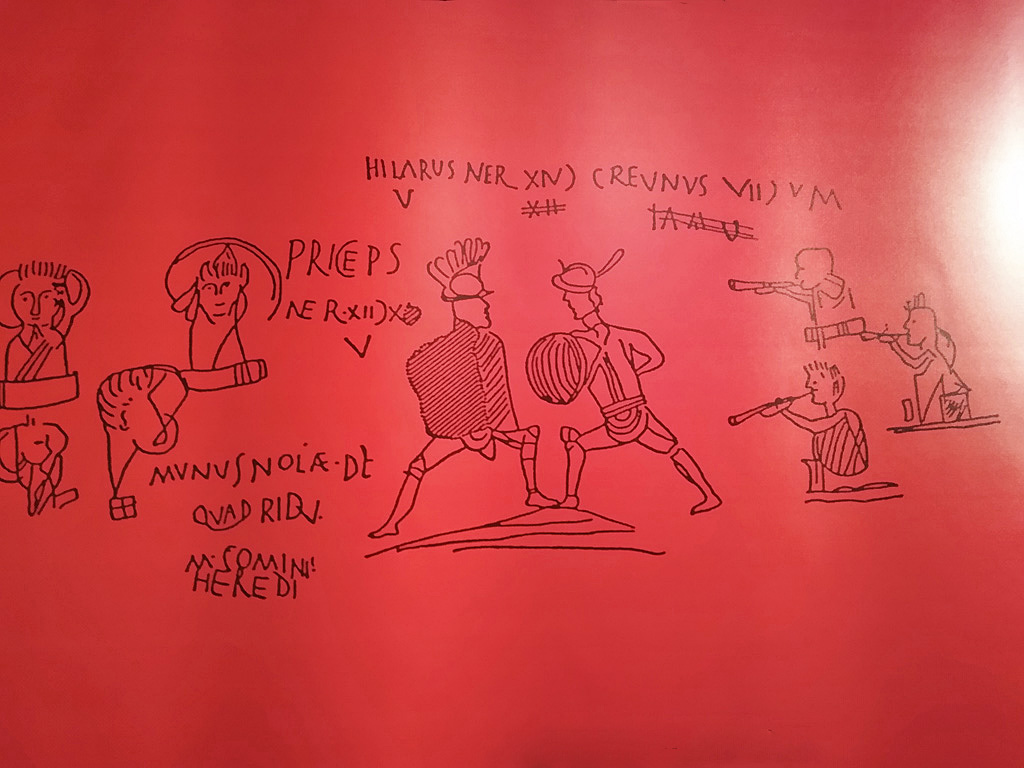 HILARUS NER XIV) CREUNUS VII) V M
V XII IAM V
PRICEPS
NER·XII)X
V
MUNUS NOLÆ·DE
QUADRIDU.
M·SOMINI!
HEREDI